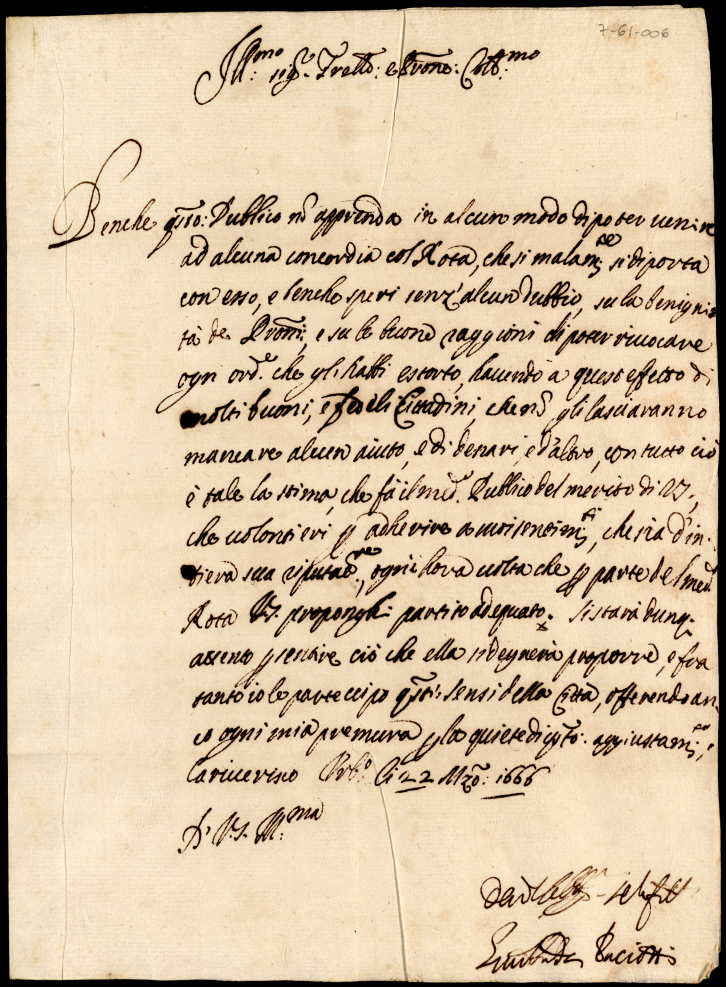 7-61-006
Ill:mo sig.r Fretto: e Prone: Coll:mo
Benche qsto: Publico nō apprenda in alcun modo di poter venire
ad alcuna concordia col Rota, che si malam.te si diporta
con esso, e benche speri senz'alcun dubbio, su la benigni
tà de Proni:, e su le buone raggioni di poter rivocare
ogni ord.e che gli habbi estorto, havendo a quest effetto di
molti buoni, e fedeli Cittadini, che nō gli lasciaranno
mancare alcun aiuto, e di denari, e d'altro, con tutto ciò
è tale la stima, che fà il med.o Publico del merito di VS,
che volontieri p adherire a suoi sentim.ti, che sia d'in-
tiera sua riputat.ne, ogni hora volta che p parte del med.o
Rota VS. proponghi partito adequato. Si starà dunq.
attento p sentire ciò che ella si degnerà proporre, e fra
tanto io le partecipo qsti: sensi della Città, offerendo an-
co ogni mia premura p la quiete di qsto: aggiustam.to, e
la riverisco Urb.o li 22 Mzo: 1666
D' V.S. Ill:ma
Paciotti